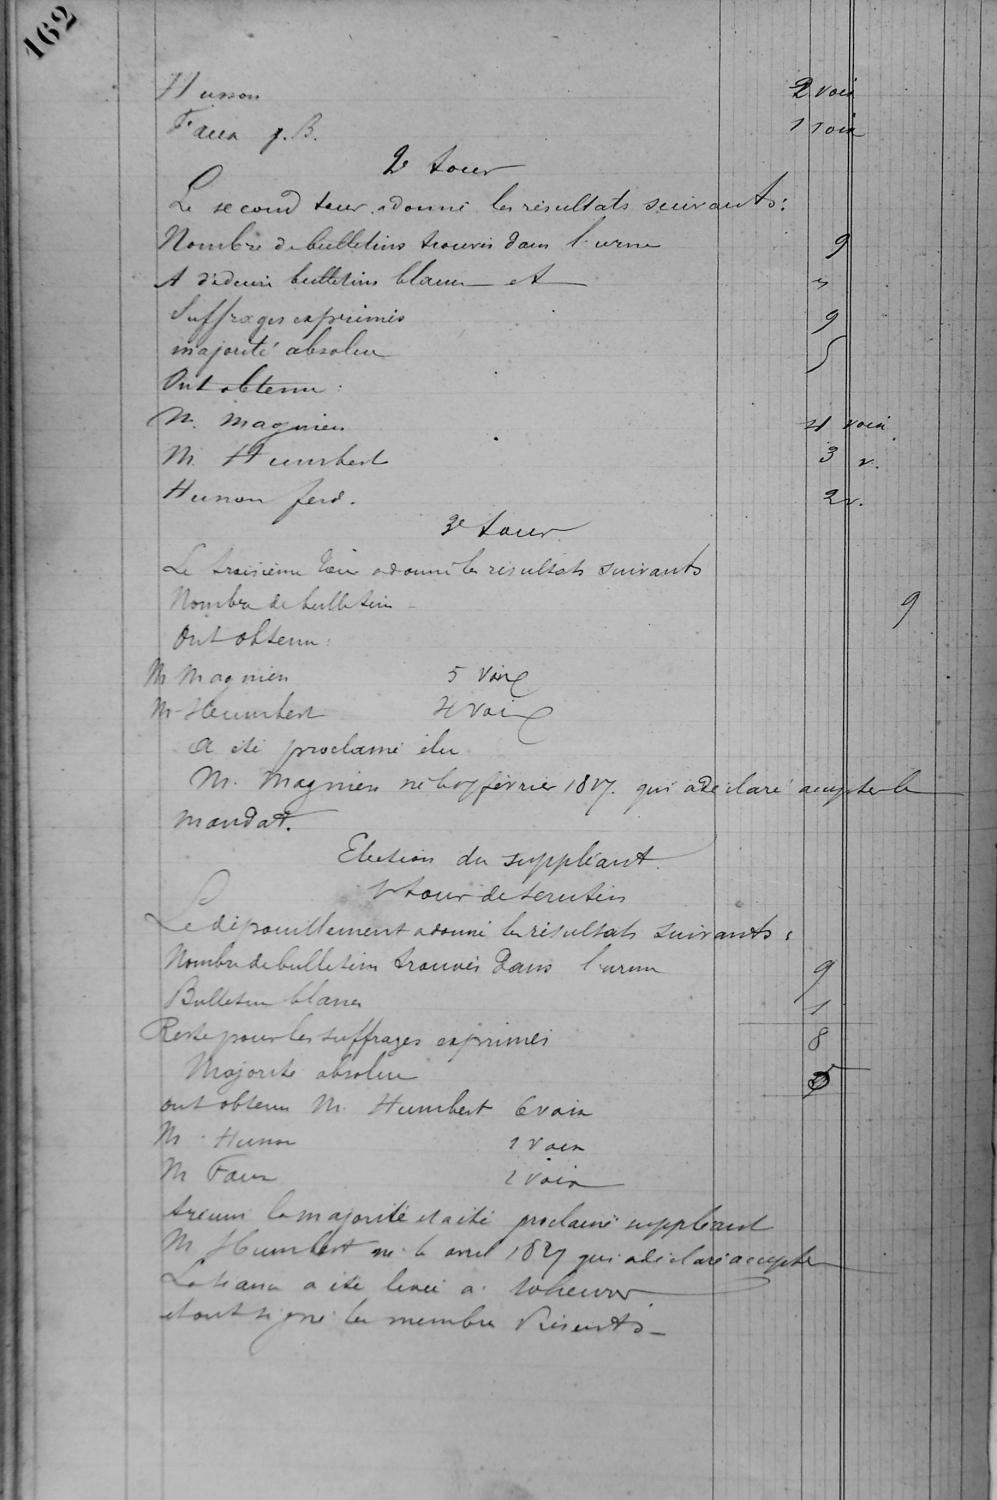 162
Husson 2 voix
Faux J. B. 1 voix
2e tour
Le second tour a donné les résultats suivants :
Nombre de bulletins trouvés dans l'urne 9
A déduire bulletins blancs et
Suffrages exprimés 9
majorité absolue 5
Ont obtenu :
M. Magnien 4 voix
M. Humbert 3 v.
Husson ferd. 2 v.
3e tour
Le troisième tour a donné les résultats suivants
Nombre de bulletins 9
Ont obtenu :
M Magnien 5 voix
M Humbert 4 voix
A été proclamé élu
M. Magnien né le février qui a déclaré accepter le
mandat.
Election du suppléant.
1er tour de scrutin
Le dépouillement a donné les résultats suivants :
Nombre de bulletins trouvés dans l'urne 9
Bulletin blanc 1
Reste pour les suffrages exprimés 8
Majorité absolue 5
ont obtenu M. Humbert 6 voix
M. Husson 1 voix
M Faux 1 voix
a réuni la majorité et a été proclamé suppléant
M Humbert né le avril qui a déclaré accepter
La séance a été levée à heures
et ont signé les membres Présents